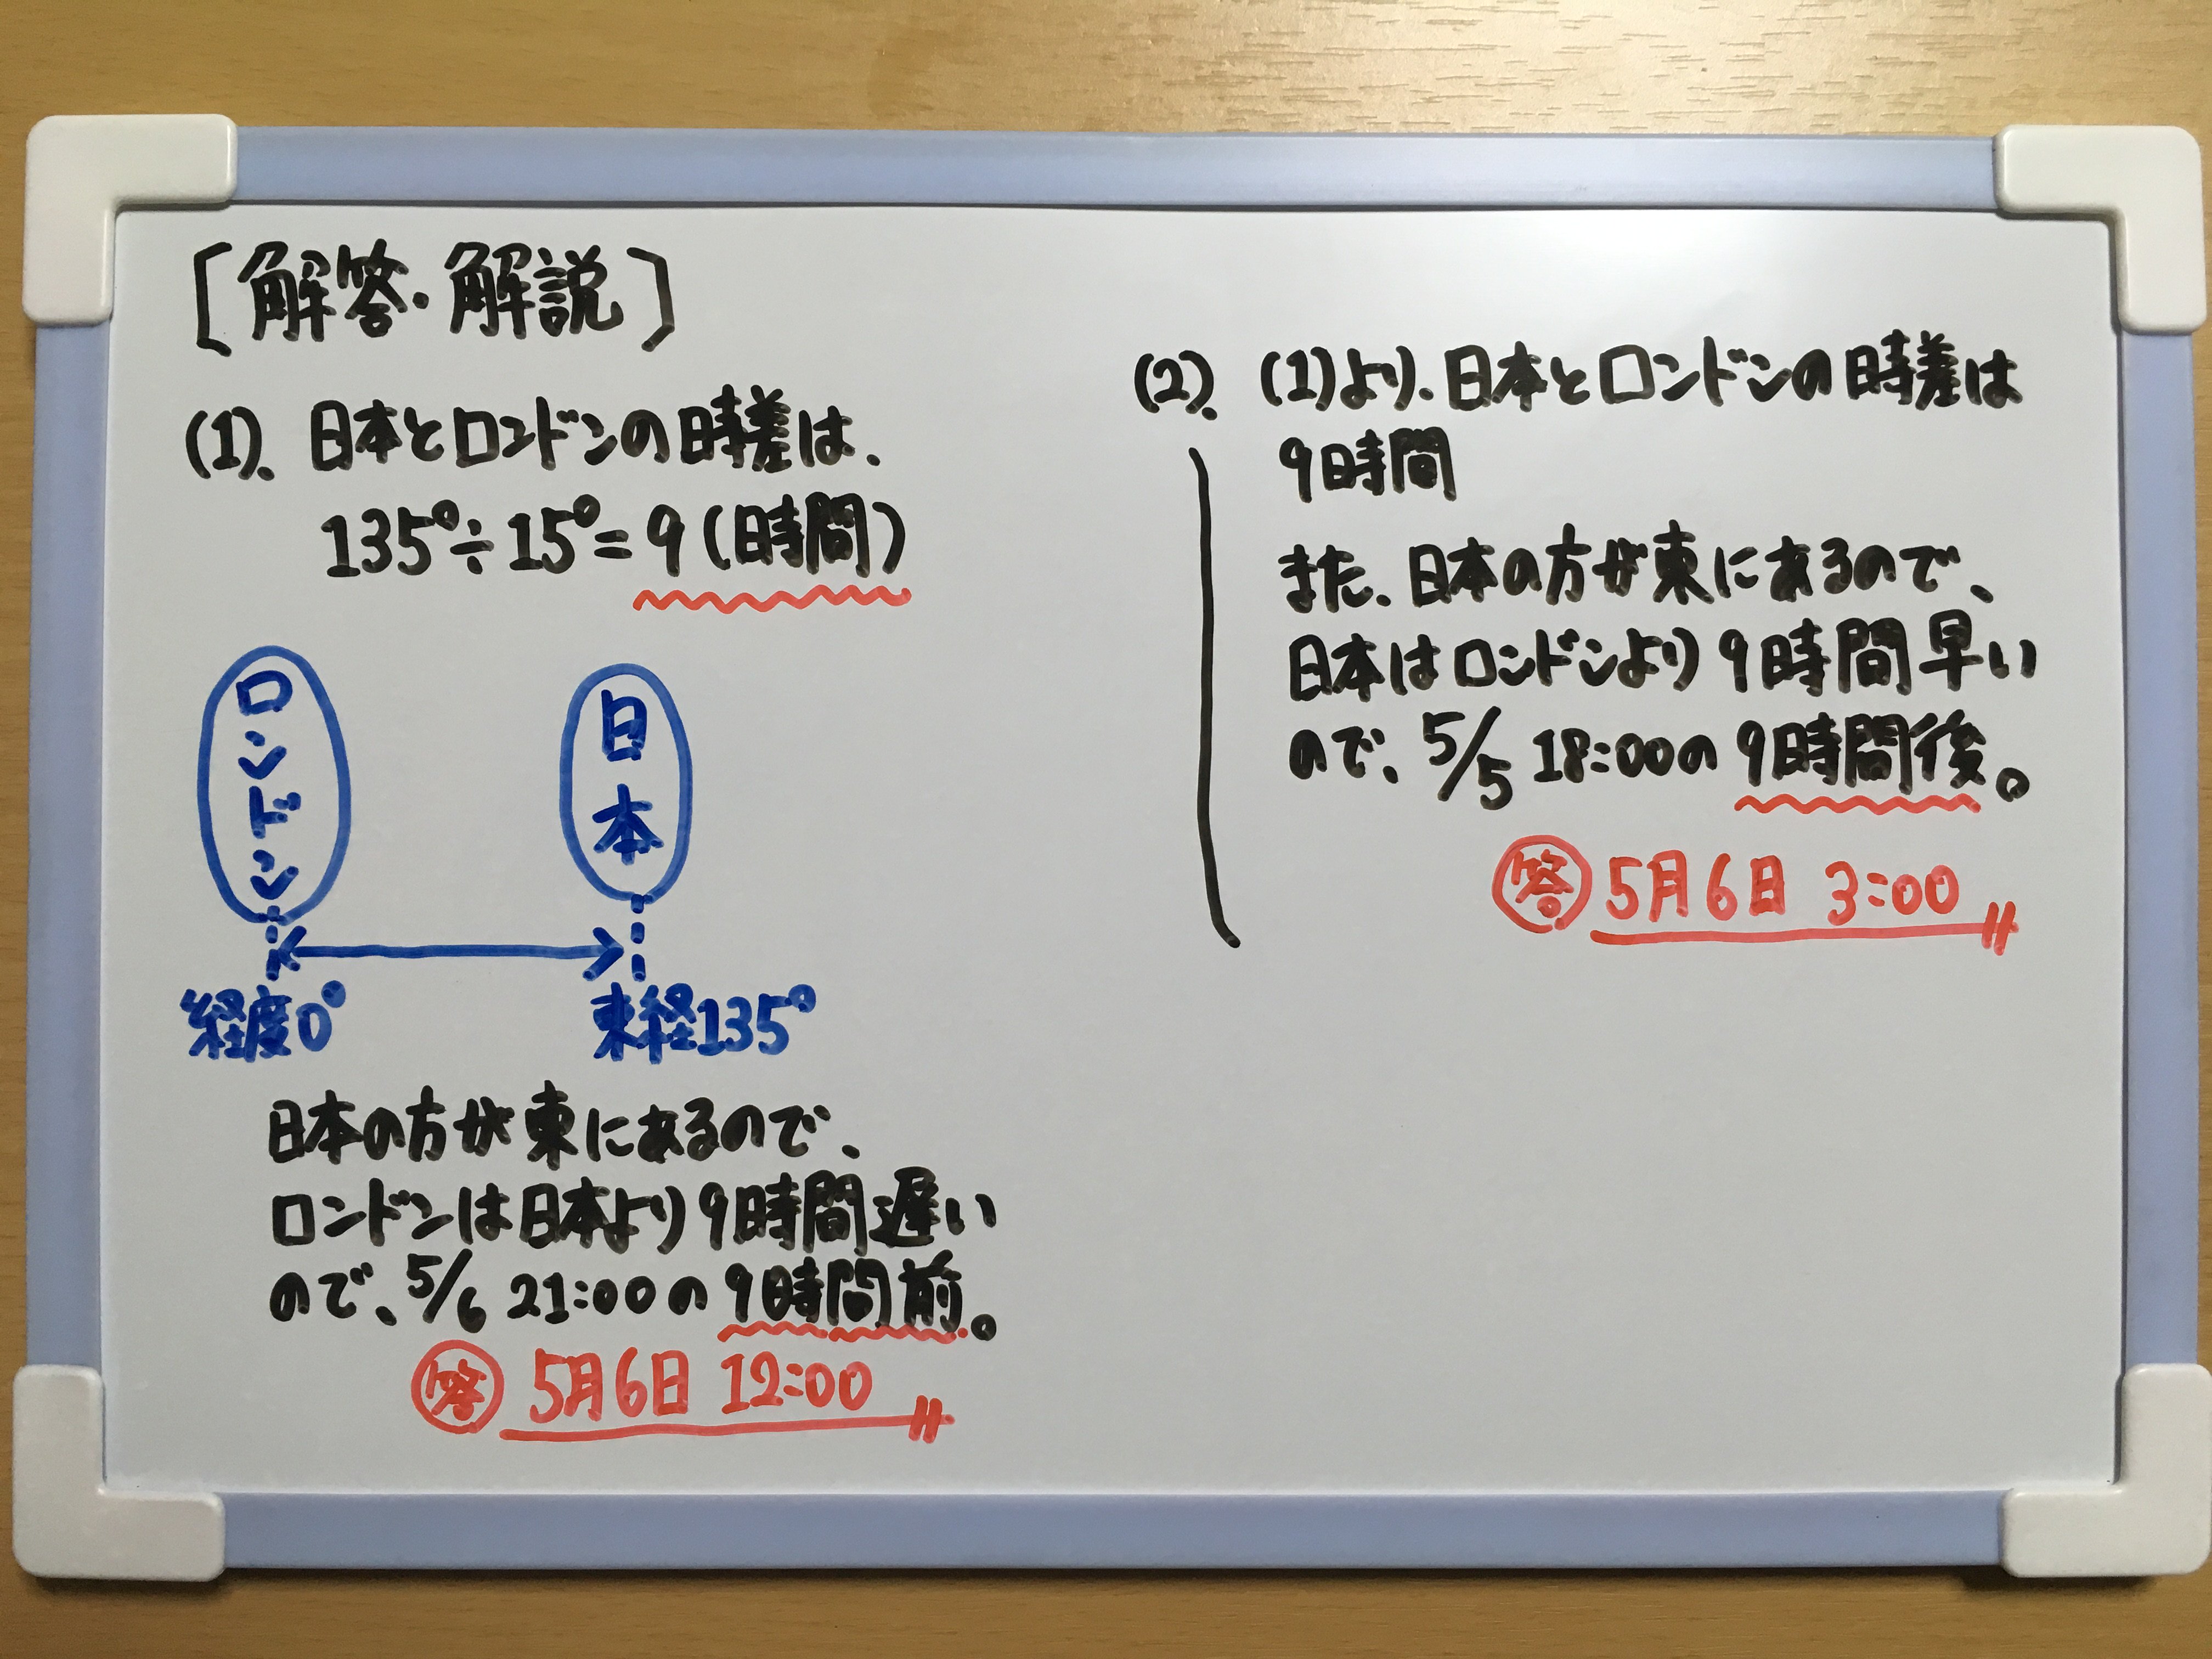 [解答・解説]
(1). 日本とロンドンの時差は、
135°÷15°=9(時間)
ロンドン
日本
経度0°
東経135°
日本の方が東にあるので、
ロンドンは日本より9時間遅い
ので、5/6 21:00の9時間前。
答 5月6日 12:00
(2). (1)より、日本とロンドンの時差は
9時間
また、日本の方が東にあるので、
日本はロンドンより9時間早い
ので、5/5 18:00の9時間後。
答 5月6日 3:00